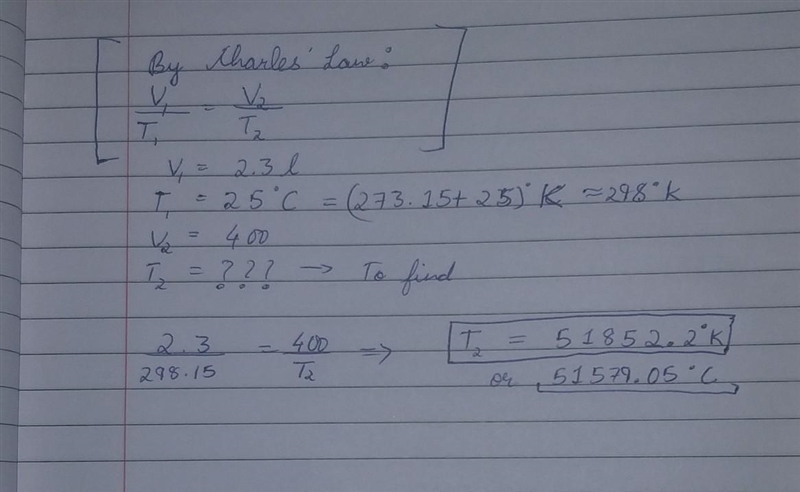 By Charles' Law:
V₁/T₁ = V₂/T₂
V₁ = 2.3 l
T₁ = 25°C = (273.15+25)°K ≈298°K
V₂ = 400
T₂ = ??? → To find
2.3/298.15 = 400/T₂ ⇒ T₂ = 51852.2°K
or 51579.05°C